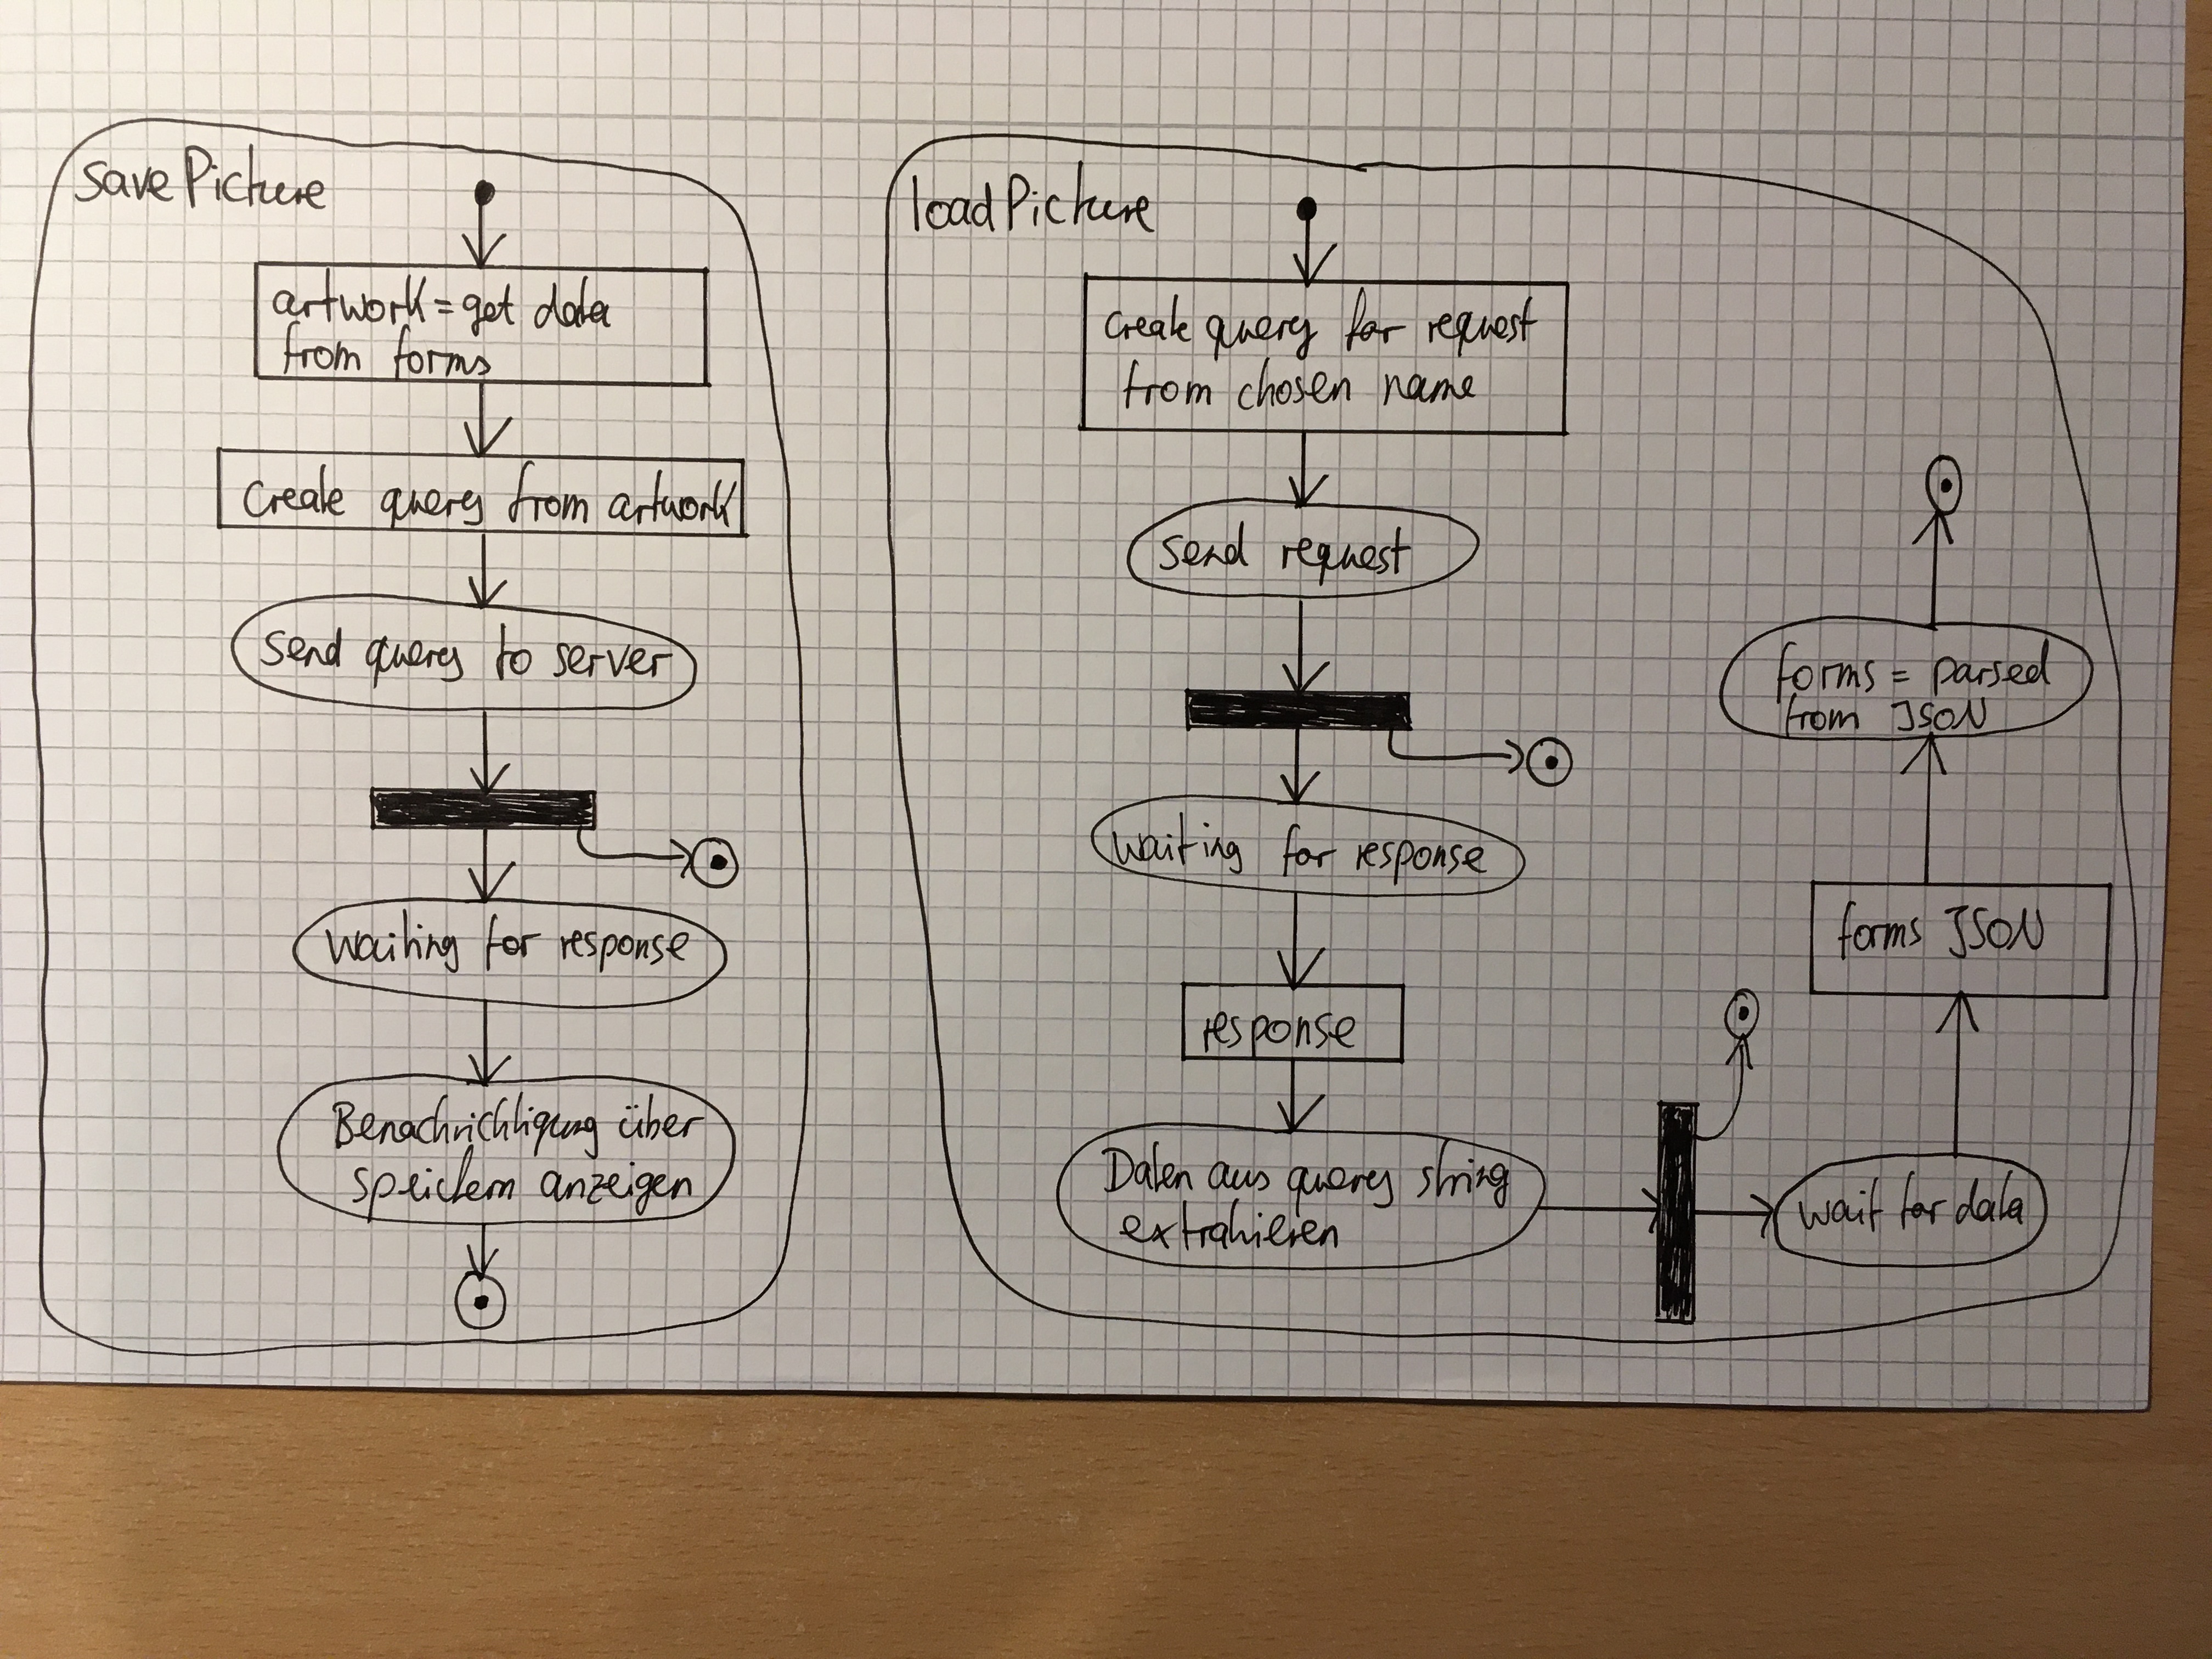 savePicture
artwork = get data
from forms
Create query from artwork
Send query to server
waiting for response
Benachrichtigung über
Speichern anzeigen
loadPicture
create query for request
from chosen name
Send request
waiting for response
response
Daten aus query string
extrahieren
wait for data
forms JSON
forms = parsed
from JSON